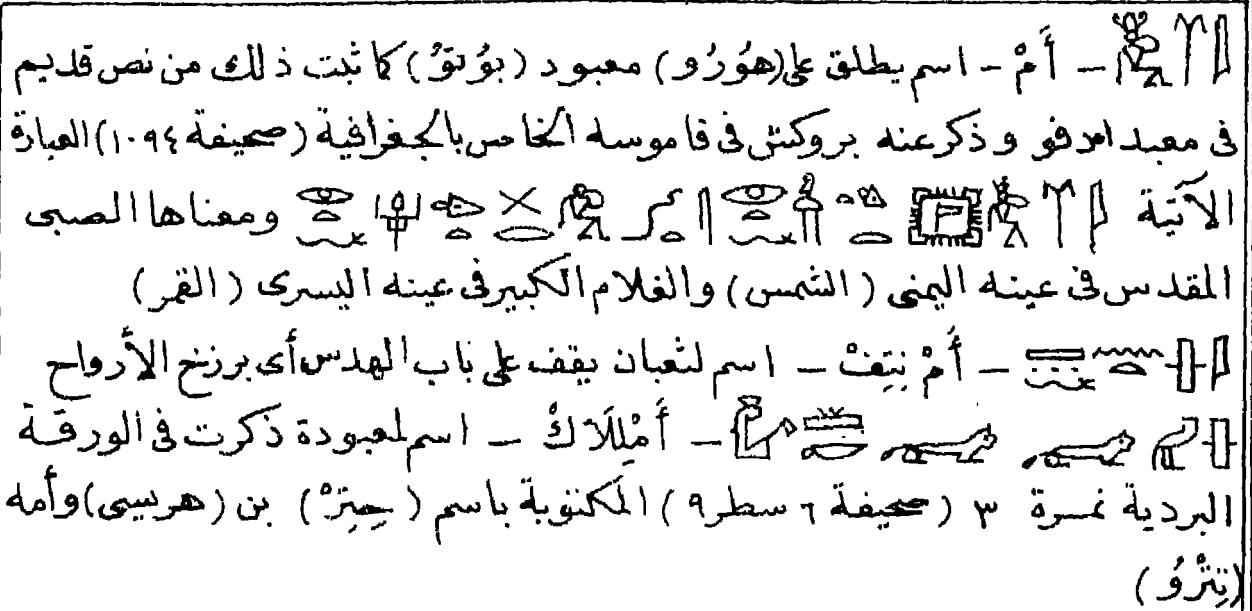 — أَمْ - اسم يطلق على (هوُرُو) معبود (بوُتوُ) كما ثبت ذلك من نص قديم
فى معبد ادفو وذكر عنه بروكش فى قاموسه الخامس بالجغرافية (صحيفة ١٠٩٤) العبارة
الآتية ومعناها الصبى
المقدس فى عينه اليمنى (الشمس) والغلام الكبير فى عينه اليسرى (القمر)
— أَمْ نِتِفْ — اسم لثعبان يقف على باب الهدس أى برزخ الأرواح
— أَمْلِلَاكْ — اسم لمعبودة ذكرت فى الورقة
البردية نمرة ٣ (صحيفة ٦ سطر ٩) المكتوبة باسم (حِتِرْ) بن (هرسيسى) وأمه
(تِتْرُو)